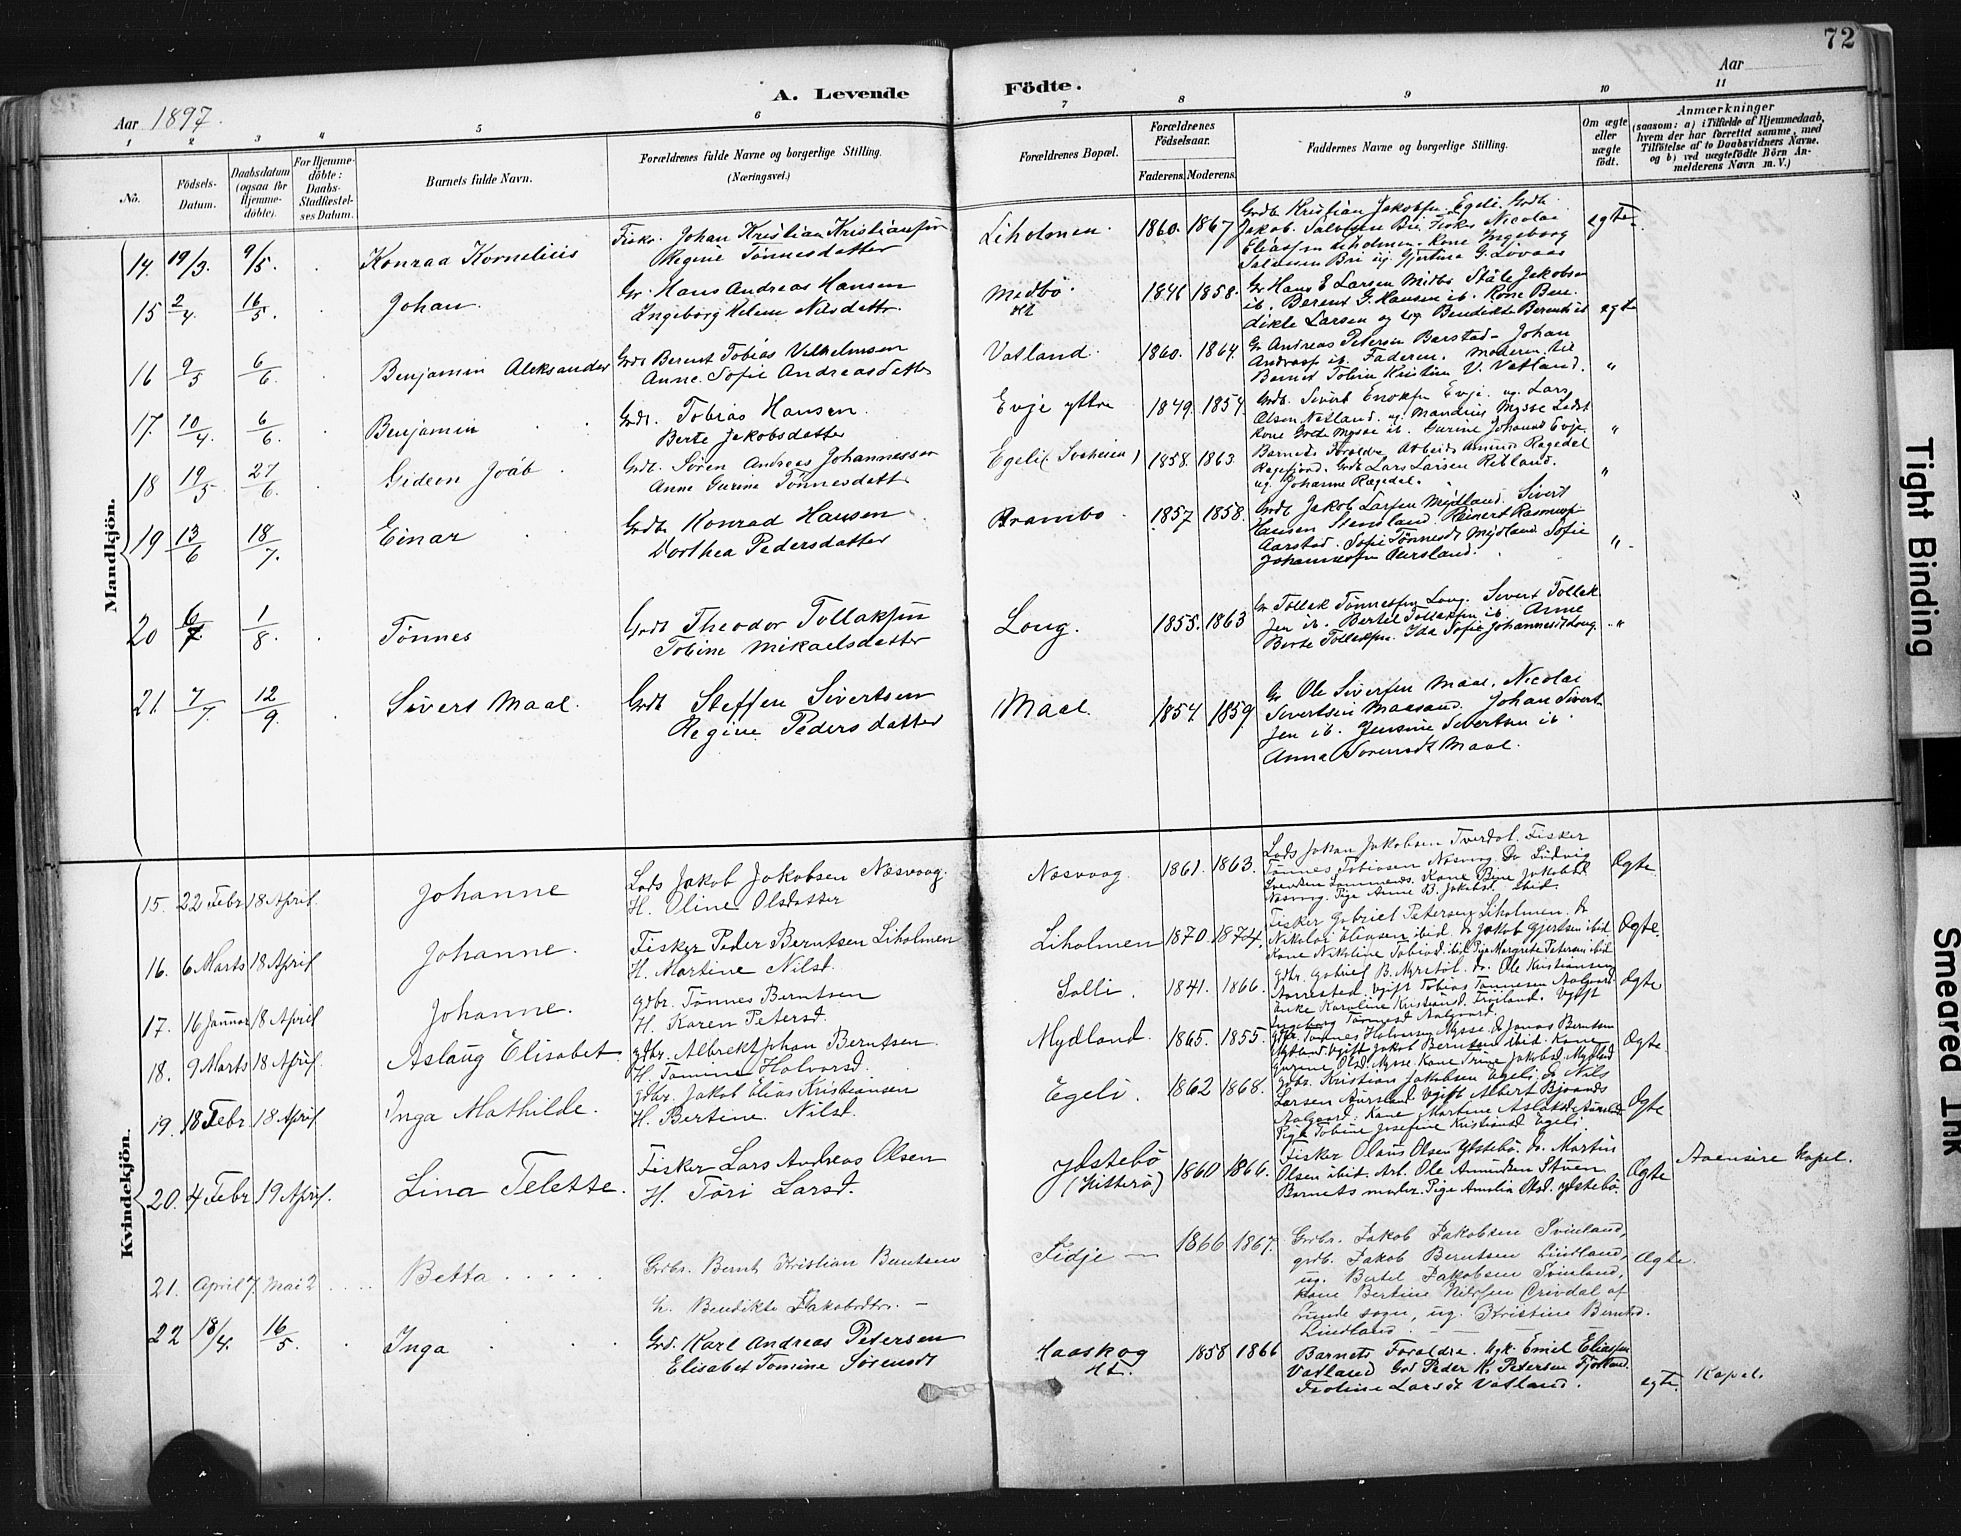 72
Aar 1897.
A. Levende Födte.
Aar
1 2 3 4 5 6 7 8 9 10 11
No.
Födsels-Datum.
Daabsdatum (ogsaa for Hjemmedöbte).
For Hjemmedöbte: Daabs-Stadfæstelses Datum.
Barnets fulde Navn.
Forældrenes fulde Navne og borgerlige Stilling. (Næringsvei.)
Forældrenes Bopæl.
Forældrenes Födselsaar.
Faderens. Moderens.
Faddernes Navne og borgerlige Stilling.
Om ægte eller uægte födt.
Anmærkninger
(saasom: a) i Tilfælde af Hjemmedaab, hvem der har forrettet samme, med Tilföielse af to Daabsvidners Navne, og b) ved uægtefödte Börn Anmelderens Navn m. V.)
Mandkjön.
14. 19/3. 9/5. Konrad Kornelius
Fisker. Johan Kristian Kristiansen
Regine Tønnesdatter
Liholmen. 1860. 1867
Grdb Kristian Jakobsen Egeli. Grdb
Jakob Salvesen Bri. Nicolai
Eliassen Liholmen. Kone Ingeborg
Salvesen Bri ug Gjertine G. Lovaas
egte.
15 2/4. 16/5. Johan.
Gr. Hans Andreas Hansen
Ingeborg Helene Nilsdatter
Medbø. Ht 1846 1858.
Gr Hans E Larsen Midbø Ståle Jakobsen
ib. Berent G. Hansen ib. Kone Bene
dikte Larsen og ug Bendikte Berents ib
egte
16 9/5 6/6. Benjamin Aleksander
Grdb Berent Tobias Vilhelmsen
Anne Sofie Andreasdatter
Vatland. 1860. 1864.
Gr Andreas Petersen Barstad. Johan
Andreas ib. Faderen. Moderen til
Barnet Tobine Kristine V. Vatland. "
17. 10/4. 6/6. Benjamin
Grdb. Tobias Hansen.
Berte Jakobsdatter
Evje yttre 1849. 1854.
Grdb. Sivert Enoksen Evje. ug. Lars
Olsen Netland. ug. Mandius Mysse
Kone Grete Mysse ib. Gurine Johanne Evje. "
18 19/5 27/6. Gideon Joáb.
Grdb. Søren Andreas Johannessen
Anne Gurine Tønnesdatter
Egeli (Svoheien) 1858. 1863.
Barnets Foreldre Arbeids Amund Regedal
Regefjord. Grdb Lars Larsen Rebland.
ug. Johanne Regedal. "
19 13/6 18/7. Einar
Grdb. Konrad Hansen
Dorthea Pedersdatter
Brambo. 1857 1858.
Grdb Jakob Larsen Mydland. Sivert
Hansen Stensland. Reinert Rasmuss
Aarstad. Sofie Tønnesdt Mydland Sofie
Johannessen Aursland. "
20 6/7. 1/8. Tønnes
Grdb Theodor Tollaksen
Tobine Mikaelsdatter
Long. 1855. 1863
Gr. Tollak Tønnessen Long. Sivert Tollak
sen ib. Bertel Tollaksen ib. Anne
Berte Tollaksen. Ida Sofie Johannesdt Long. "
21. 7/7. 12/9. Sivert Maal.
Grdb Steffen Sivertsen
Regine Pedersdatter
Maal. 1854 1859
Gr Ole Sivertsen Maal. Nicolai
Sivertsen Maasand. Johan Sivert
sen ib. Jensine Sivertsen ib.
Anna Sorensdt Maal.
Kvindekjön.
15. 22 Febr 18 April. Johanne
Lods Jakob Jakobsen Næsvaag.
H. Oline Olsdatter
Næsvaag. 1861. 1863.
Lods Johan Jakobsen Tverdal. Fisker
Tønnes Tobiasen Næsvog. Do Ludvig
Svendsen. Kone Bine Jakobsd
Næsvog. Pige Anne B. Jakobsd. ibid.
Ægte
16. 6 Marts 18 April Johanne.
Fisker Peder Berntsen Liholmen
H. Martine Nilsd.
Liholmen 1870. 1874.
Fisker Gabriel Petersen Liholmen. Do
Nikolai Eliasen ibid. Do Jakob Gjertsen ibid
Kone Nikoline Tobiasd. ibid. Pige Margrete Petersen ibid
Ægte.
17. 16 Januar 18 April Johanne.
gdbr. Tønnes Berntsen
H. Karen Petersd.
Solli. 1841. 1866.
gdbr. Gabriel B. Myrstøl. do. Ole Kristiansen
Aarrestad. Ugift Tobias Tønnesen Aalgaard.
Enke Karoline Kristiansd. Froiland. Ugift
Ingeborg Tønnesd Aalgaard.
Ægte
18. 9 Marts 18 April Aslaug Elisabet
gdbr. Albrekt Johan Berntsen
H. Tomine Halvorsd.
Mydland. 1865. 1855.
gdbr. Tønnes Halvorsen Mysse. do Jonas Berntsen
Mydland. Ugift Jakob Berntsen ibid. Kone
Gurine Olsd. Mysse. Kone Trine Jakobsd. Mydland
Ægte.
19. 18 Febr 18 April Inga Mathilde.
gdbr. Jakob Elias Kristiansen
H. Bertine Nilsd.
Egeli. 1862 1868.
gdbr. Kristian Jakobsen Egeli, do Nils
Larsen Aursland. Ugift Albert Bjoands
Aalgaard. Kone Martine Aslaksd Aursland
Pige Tobine Josefine Kristiansd Egeli
Ægte
20. 4 Febr 19 April. Lina Telette.
Fisker Lars Andreas Olsen
H. Tøri Larsd.
Ystebø (Hitterø) 1860 1866.
Fisker Olaus Olsen Ystebø. Do. Martin
Olsen ibid. Arb. Ole Amundsen Stuen
Barnets moder. Pige Amalia Olsd. Ystebø.
Ægte
Aaensire Kapel.
21. April 7. Mai 2 Betta
Grdbr. Bernt Kristian Berntsen
h. Bendikte Jakobsdtr. —
Fidje — 1866 1867.
Grdbr. Jakob Jakobsen Tvinland,
grdb. Jakob Berntsen Lindland,
ug. Bertel Jakobsen Tvinland,
kone Bertine Nilssen Orrvdal af
Lunde sogn, ug. Kristine Berntsd.
Lindland
Ægte.
22 18/4. 16/5. Inga
Grd. Karl Andreas Petersen
Elisabet Tomine Sørensdt
Haaskog Ht. 1858 1866
Barnets Foreldre. Ugk. Emil Eliassen
Vatland Grd Peder K. Petersen Fjotland
Froline Larsdt Vatland.
egte.
Kapel.
Tight Binding
Smeared Ink